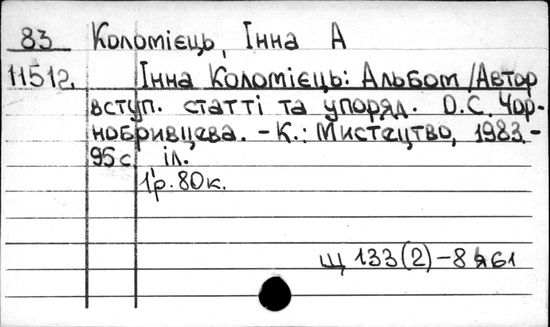 83 Коломієць, Інна А
11512. Інна Коломієць: Альбом /Автор
вступ. статті та упоряд. О.С. Чор-
нобривцева. - К.: Мистецтво, 1983.-
95с іл.
1р. 80к.
Щ 133(2)-8 я61